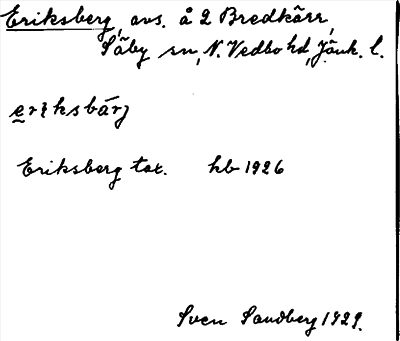 Eriksberg, avs. å 2 Bredkärr,
Säby sn, N. Vedbo hd, Jönk. l.
Eriksberg tax. hb 1926
Sven Sandberg 1929.